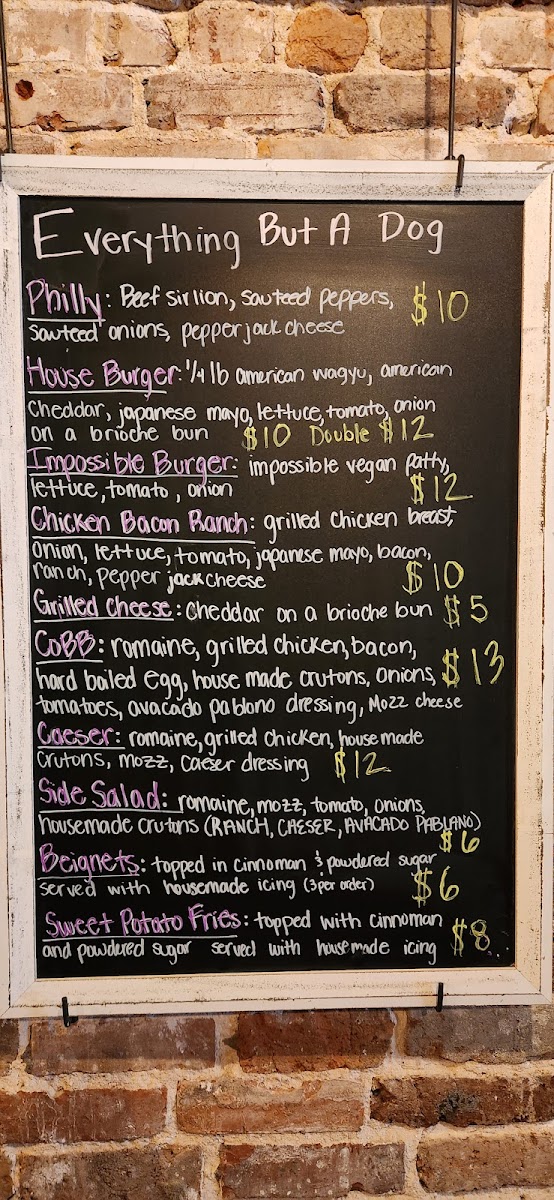 Everything But A Dog
Philly: Beef sirlion, sauteed peppers, $10
sauteed onions, pepper jack cheese
House Burger: 1/4 lb american wagyu, american
cheddar, japanese mayo, lettuce, tomato, onion
on a brioche bun $10 Double $12
Impossible Burger: impossible vegan patty,
lettuce, tomato, onion $12
Chicken Bacon Ranch: grilled chicken breast,
onion, lettuce, tomato, japanese mayo, bacon,
ranch, pepper jack cheese $10
Grilled cheese: cheddar on a brioche bun $5
CoBB: romaine, grilled chicken, bacon,
hard boiled egg, house made crutons, onions, $13
tomatoes, avacado pablono dressing, Mozz cheese
Caeser: romaine, grilled chicken, house made
crutons, mozz, caeser dressing $12
Side Salad: romaine, mozz, tomato, onions,
housemade crutons (RANCH, CAESER, AVACADO PABLANO)
$6
Beignets: topped in cinnoman & powdered sugar
served with housemade icing (3 per order) $6
Sweet Potato Fries: topped with cinnoman
and powdered sugar served with housemade icing $8